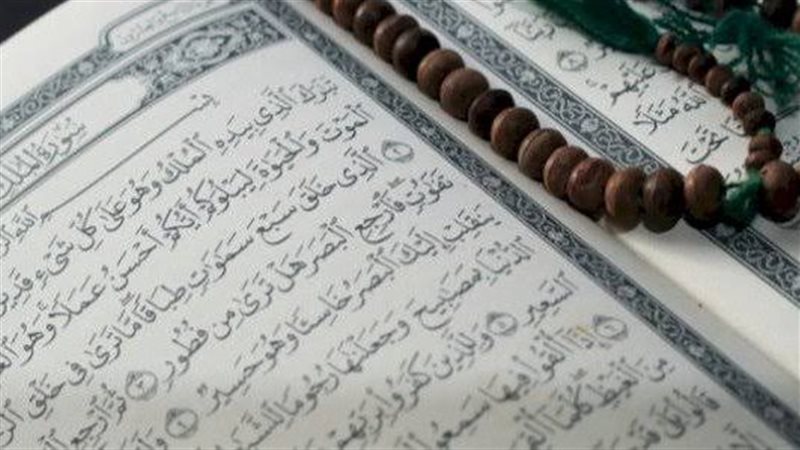 سُورَةُ المُلْك
بِسْمِ ٱللَّهِ
تَبَٰرَكَ ٱلَّذِي بِيَدِهِ ٱلْمُلْكُ وَهُوَ عَلَىٰ كُلِّ شَيْءٍ قَدِيرٌ
ٱلْمَوْتَ وَٱلْحَيَوٰةَ لِيَبْلُوَكُمْ أَيُّكُمْ أَحْسَنُ عَمَلًا وَهُوَ
ٱلَّذِي خَلَقَ سَبْعَ سَمَٰوَٰتٍ طِبَاقًا مَّا تَرَىٰ فِي خَلْقِ
تَفَٰوُتٍ فَٱرْجِعِ ٱلْبَصَرَ هَلْ تَرَىٰ مِن فُطُورٍ ٣ ثُمَّ ٱرْجِعِ
يَنقَلِبْ إِلَيْكَ ٱلْبَصَرُ خَاسِئًا وَهُوَ حَسِيرٌ ٤
ٱلدُّنْيَا بِمَصَٰبِيحَ وَجَعَلْنَٰهَا رُجُومًا
ٱلسَّعِيرِ ٥ وَلِلَّذِينَ كَفَرُوا۟ بِرَبِّهِمْ
٦ إِذَآ أُلْقُوا۟ فِيهَا سَمِعُوا۟
مِنَ ٱلْغَيْظِ كُلَّمَآ
عَنْهُمْ
ٱللَّهُ مَثَلًا
تَحْتَ